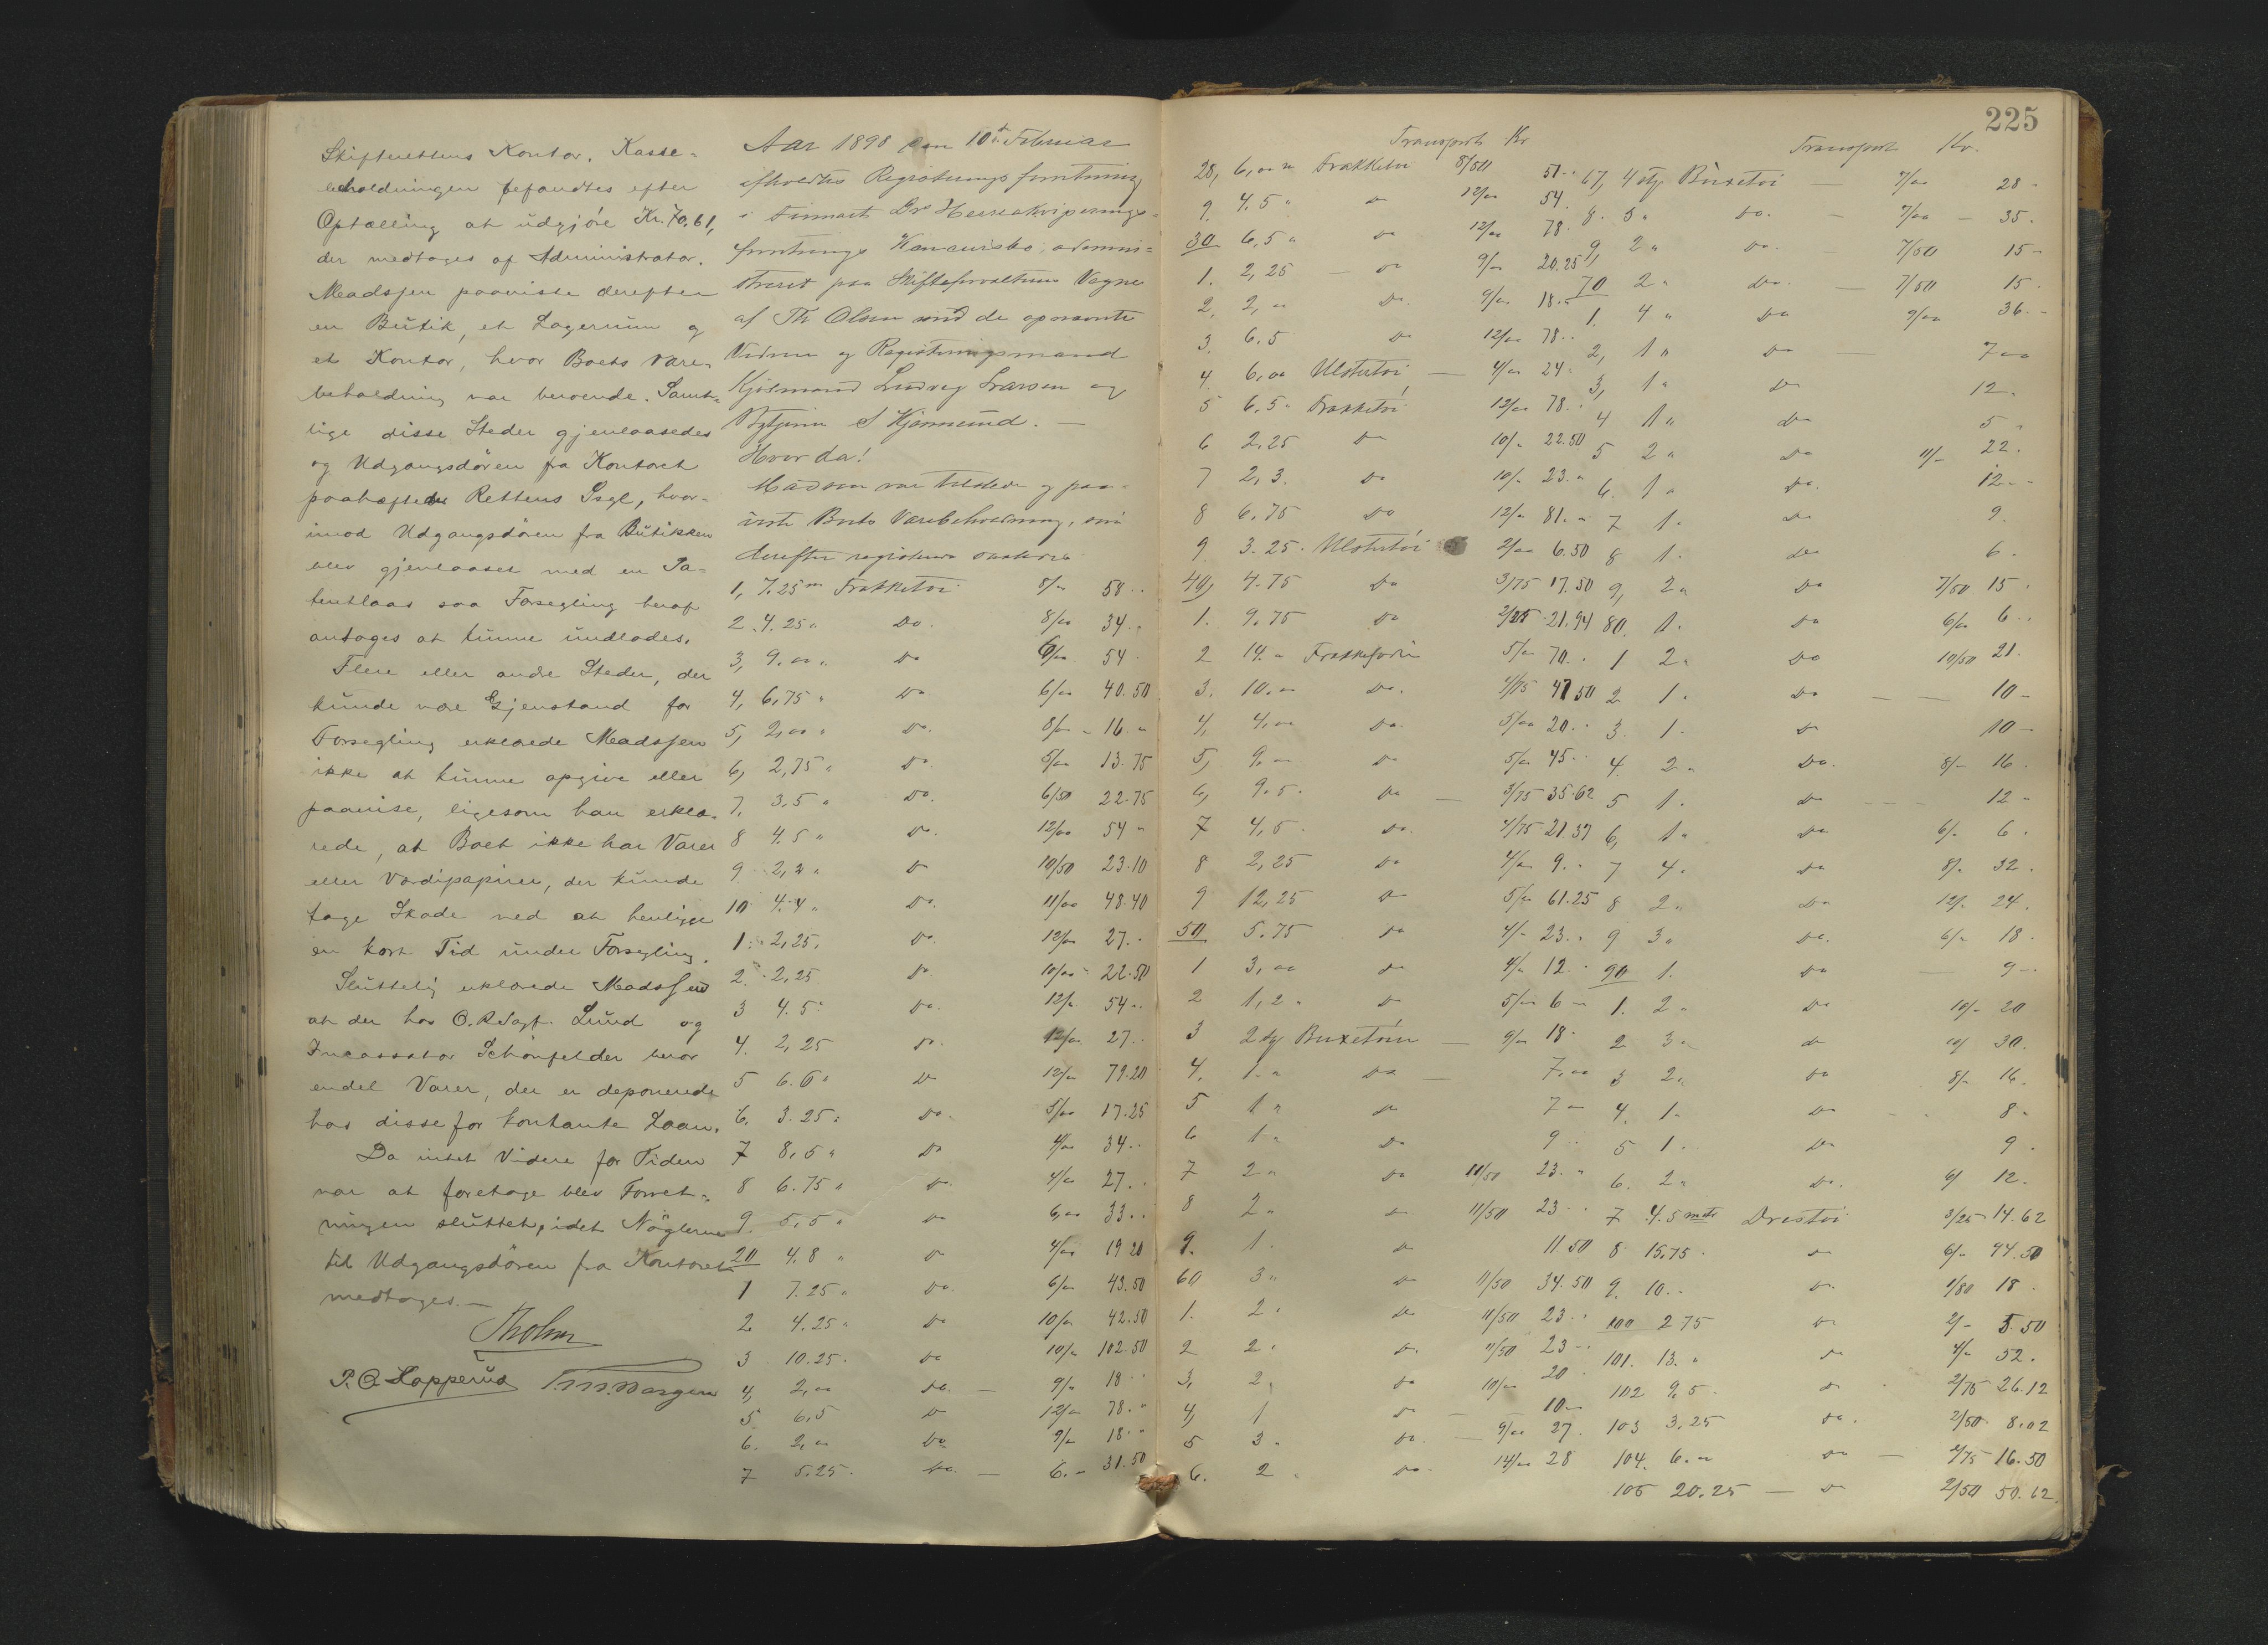 Skifterettens Kontor. Kasse-
beholdningen befandtes efter
Optælling at udgjöre Kr. 70.61,
der medtages af Administrator.
Madssen paaviste derefter
en Bütik, et Lagerrüm og
et Kontor, hvor Boets Vare-
beholdning var beroende. Samt-
lige disse Steder gjenlaasedes
og Udgangsdören fra Kontoret
paahæftedes Rettens Segl, hvor-
imod Udgangsdören fra Bütikken
blev gjenlaaset med en Pa-
tentlaas saa Forsegling heraf
antages at künne ündlades.
Flere eller andre Steder, der
künde være Gjenstand for
Forsegling erklærede Madssen
ikke at künne opgive eller
paavise, ligesom han erklæ-
rede, at Boet ikke har Varer
eller Værdipapirer, der künde
tage Skade ved at henligge
en kort Tid ünder Forsegling.
Slüttelig erklærede Madssen
at der hos O.R.Sagf. Lünd og
Incassator Schönfelder beror
endel Varer, der er deponerede
hos disse for kontante Laan.
Da intet Videre for Tiden
var at foretage blev Forret-
ningen slüttet, idet Nöglerne
til Udgangsdören fra Kontoret
medtages.—
Th Olsen
P. O. Kopperud
Aar 1898 den 10de Februar
afholdtes Registreringsforretning
i Firmaet Herreekviperings-
forretnings Konkursbo, adminis-
treret paa Skifteforvaltnings Vegne
af Th Olsen med de opnævnte
Vidner og Registreringsmænd
Kjöbmand Ludvig Larsen og
S Kjernmund.—
Hvor da!
Madssen var tilstede og paa-
viste Boets Varebeholdning, som
derefter registreres saaledes
1, 7.25 m Frakketöi 8/" 58..
2. 4.25 " Do. 8/00 34..
3, 9.00 " Do 6/00 54.
4, 6,75 " Do. 6/00 40.50
5, 2,00 " Do. 8/00 - 16."
6, 2,75 " Do. 5/00 13.75
7, 3,5 " Do. 6/50 22.75
8 4.5 " Do. 12/00 54 "
9 2,2 " Do 10/50 23.10
10 4.4 " Do. 11/00 48.40
1. 2,25. Do. 12/00 27..
2. 2,25 Do. 10/00 22.50
3 4.5 " Do. 12/" 54..
4. 2,25 Do. 12/00 27..
5 6.6 " Do 12/" 79.20
6. 3.25 " Do. 5/00 17.25
7 8,5 " Do 4/00 34..
8 6.75 " Do. 4/00 27..
9. 5,5 " Do 6,00 33..
20 4.8 " Do 4/00 19 20
1 7.25 " Do. 6/00 43.50
2 4.25 " Do 10/00 42.50
3 10.25. Do 10/" 102.50
4, 2,00 Do. — 9/" 18..
5. 6,5 Do 12/" 78."
6. 2,00 Do 9/" 18."
7 5.25. Do. — 6." 31.50
225
Transport Kr
28, 6,00 m Frakketöi 8/50 51..
9. 4.5 " Do 12/00 54.
30 6,5 " Do 12/00 78.
1. 2,25 — Do 9/00 20.25
2. 2,00 Do. 9/00 18."
3. 6.5 Do 12/00 78..
4. 6,00 Ulstertöi — 4/00 24.
5 6.5 " Frakketöi 12/00 78.
6 2.25 Do 10/" 22.50
7 2,3. Do 10/" 23."
8 6.75 Do 12/" 81."
9. 3.25. Ulstertöi 2/00 6.50
40, 4.75 Do 3/75 17.50
1. 9.75 Do 2/25 21.94
2 14." Frakkefodr 5/" 70..
3. 10.00 Do. 4/75 47 50
4, 4,00 Do. 5/00 20..
5, 9,00 Do 5/00 45..
6, 9.5. Do — 3/75 35.62
7 4,5. Do. 4/75 21.37
8 2,25 Do 4/00 9..
9 12,25 Do 5/00 61.25
50 5.75 Do 4/" 23..
1 3,00 Do 4/" 12..
2 1,2 " Do 5/00 6 —
3 2 stj Buxetöier — 9/00 18.
4. 1." Do — 7,00
5 1 " Do 7 —
6 1 " Do 9..
7 2 " Do 11/50 23."
8 2 " Do 11/50 23..
9. 1. Do 11 50
60 3 " Do 11/50 34.50
1. 2. Do 11/50 23..
2 2. Do. 11/50 23 —
3, 2, Do 10/00 20
4, 1 Do — 10 —
5 3. Do. — 9/00 27.
6. 2 " Do. 14/00 28
Transport Kr.
67, 4 stj. Büxetöi — 7/00 28 -
8. 5 " Do. — 7/00 — 35.
9, 2 " Do. — 7/50 15 -
70 2 " Do. — 7/50 15.
1. 4 " Do 9/00 36.-
2, 1 " Do — 7 00
3, 1 " Do 12.
4 1 " Do 5 "
5 2 " Do 11/- 22.
6. 1 " Do. 12 —
7 1. Do 9.
8 1. Do 6.
9, 2 " Do 7/50 15.
80. 1. Do 6/00 6..
1 2. Do 10/50 21.
2 1. Do — — 10 -
3. 1. Do 10 —
4. 2 " Do. 8/- 16.
5 1. Do - - - 12 -
6, 1 " Do 6/- 6.
7 4. Do 8/- 32.
8 2 " Do 12/- 24.
9 3 " Do. 6/- 18.
90 1. Do — 9 —
1. 2 " Do 10/- 20
2 3 " Do 10/ 30.
3 2 " Do 8/- 16.
4. 1 " Do 8.
5 1. Do 9.
6. 2 " Do. 6/ 12.
7 4.5 mtr Drestöi 3/25 14.62
8 15,75. Do 6/- 94.50
9. 10.. Do. 1/80 18.
100 2 75 Do 2/- 5.50
101. 13. " Do 4/" 52.
102 9,5. Do 2/75 26.12
103 3.25 Do. 2/50 8.02
104. 6.00 Do — 2/75 16.50
105 20.25 — Do 2/50 50.62